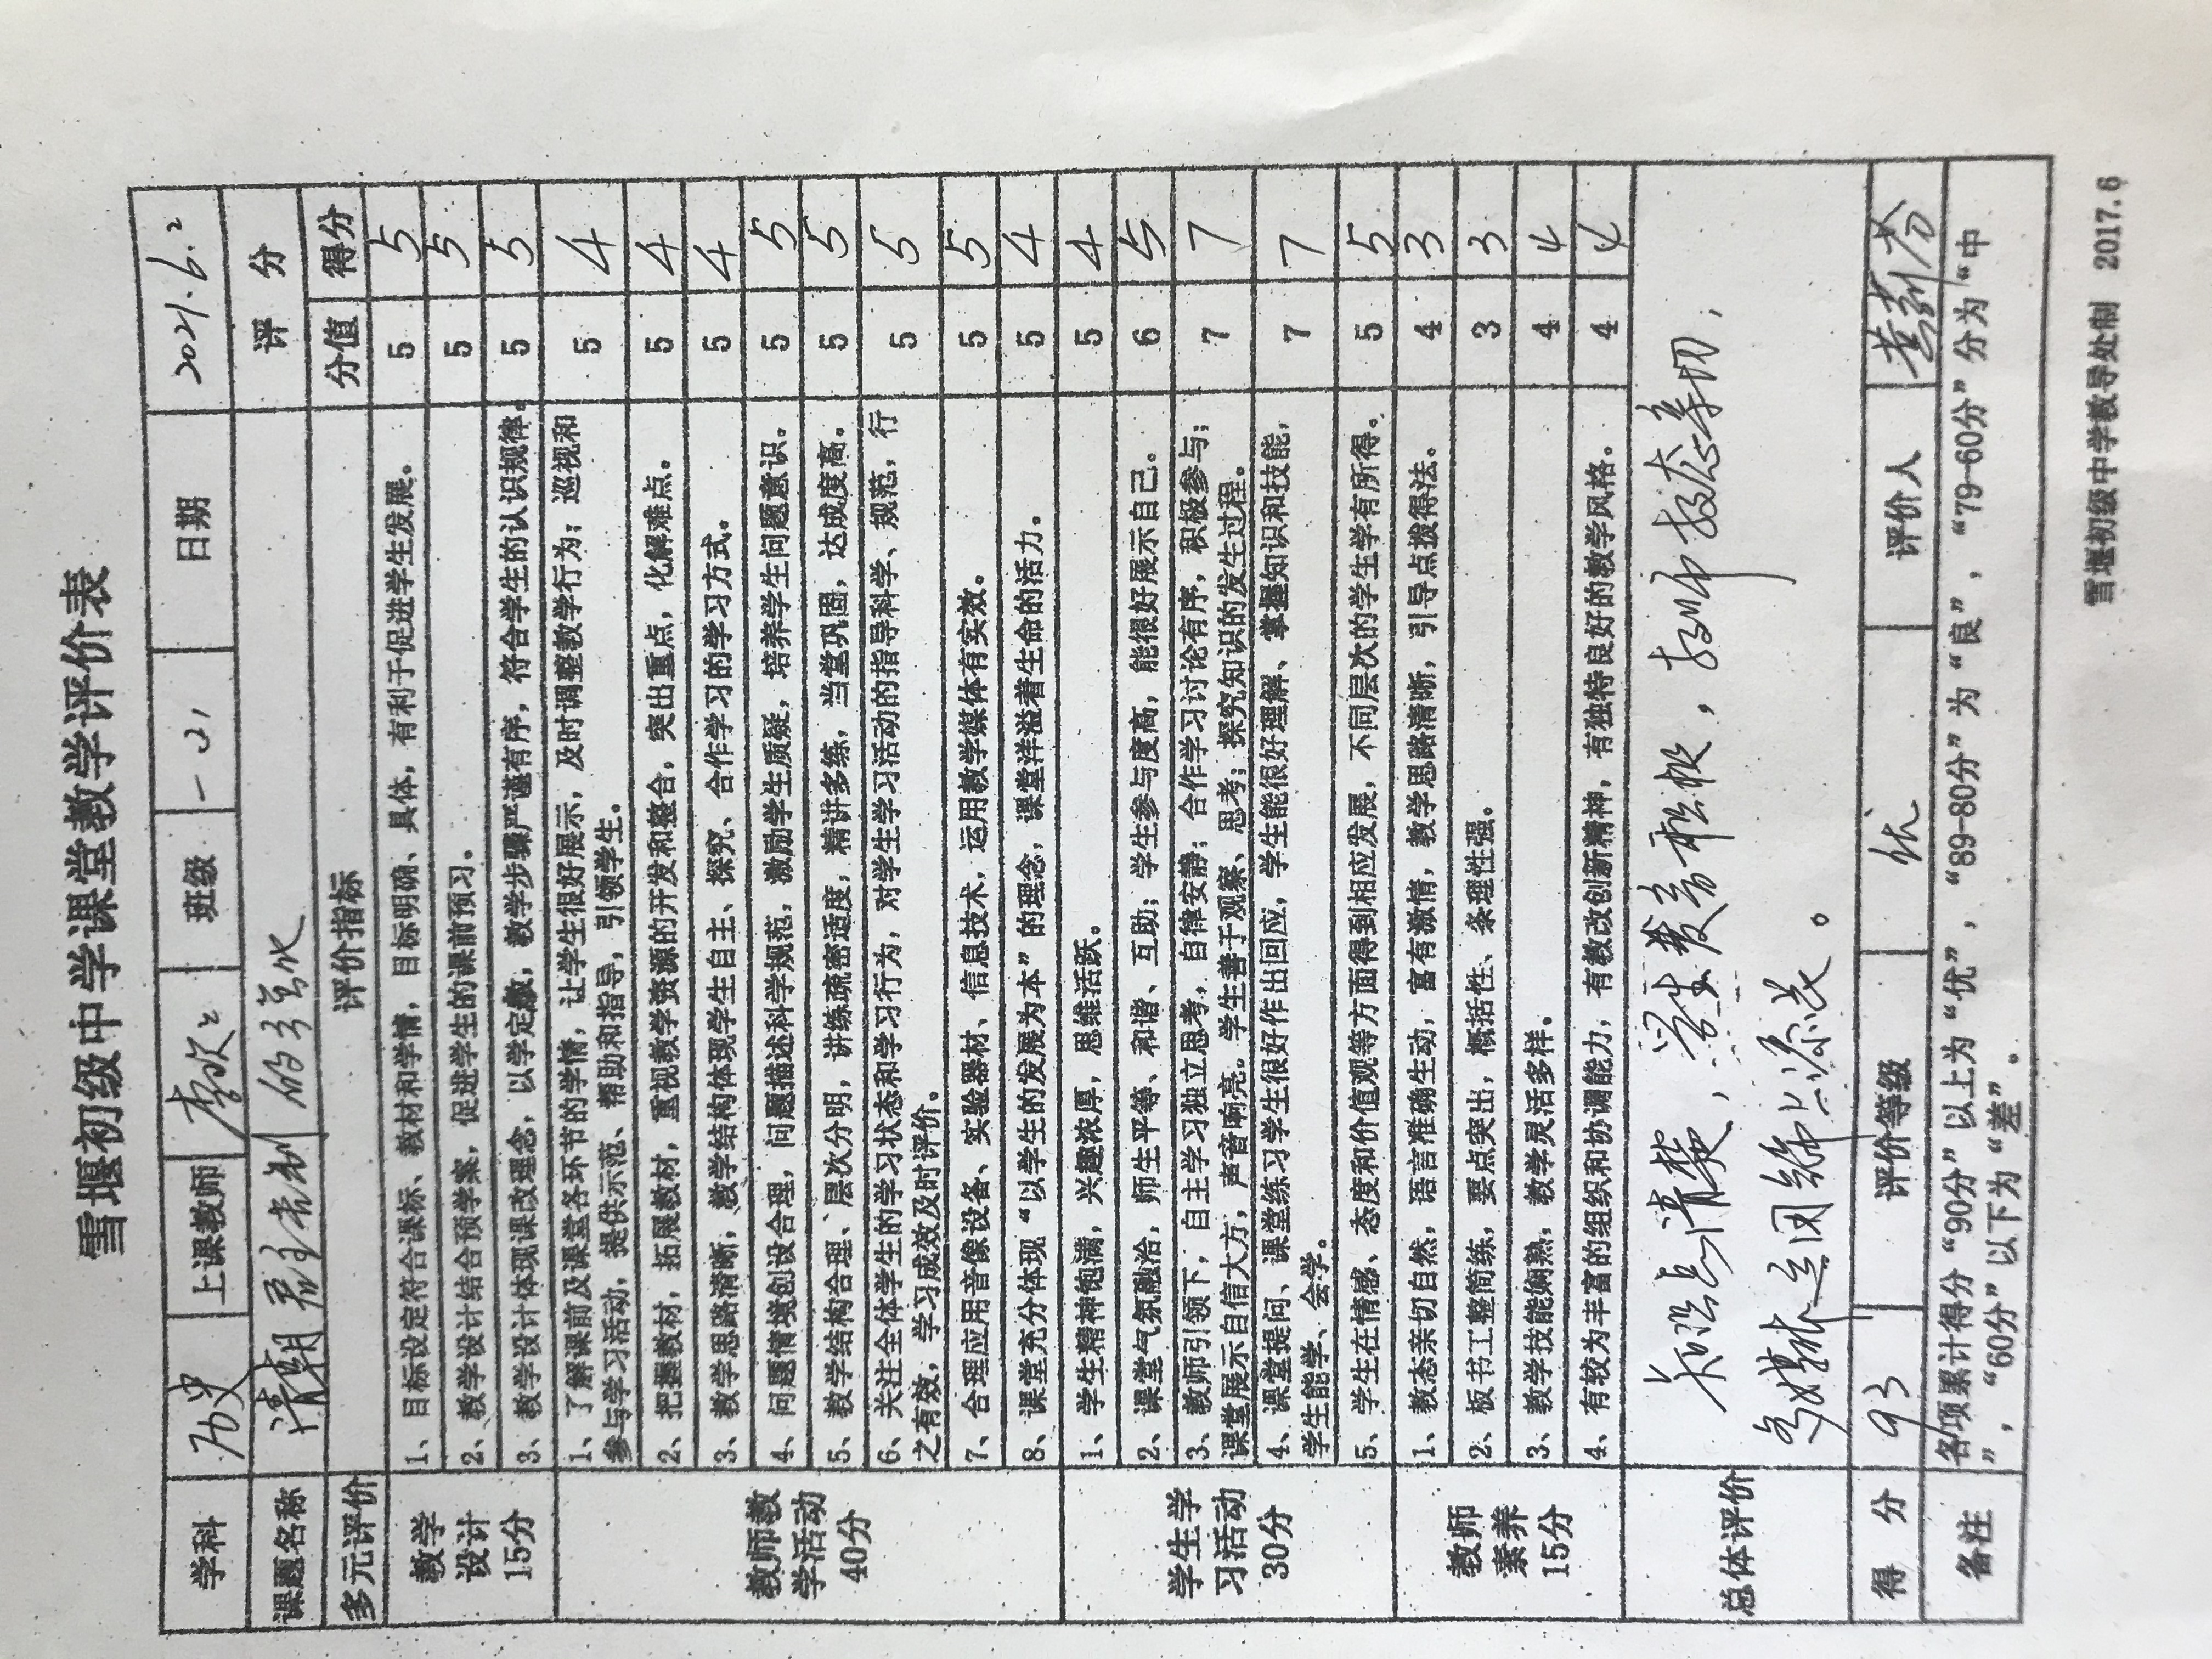 雪堰初级中学课堂教学评价表
学科 历史 上课教师 班级 日期 2021.6.2
课题名称 清朝君主专制的强化 评 分
多元评价 评价指标 分值 得分
教学设计 15分
1、目标设定符合课标、教材和学情，目标明确、具体，有利于促进学生发展。 5 5
2、教学设计结合预学案，促进学生的课前预习。 5 5
3、教学设计体现课改理念，以学定教，教学步骤严谨有序，符合学生的认识规律。 5 5
教师教学活动 40分
1、了解课前及课堂各环节的学情，让学生很好展示，及时调整教学行为；巡视和
参与学习活动，提供示范、帮助和指导，引领学生。 5 4
2、把握教材，拓展教材，重视教学资源的开发和整合，突出重点，化解难点。 5 4
3、教学思路清晰，教学结构体现学生自主、探究、合作学习的学习方式。 5 4
4、问题情境创设合理，问题描述科学规范，激励学生质疑，培养学生问题意识。 5 5
5、教学结构合理、层次分明，讲练疏密适度，精讲多练，当堂巩固，达成度高。 5 5
6、关注全体学生的学习状态和学习行为，对学生学习活动的指导科学、规范，行
之有效，学习成效及时评价。 5 5
7、合理应用音像设备、实验器材、信息技术，运用教学媒体有实效。 5 5
8、课堂充分体现“以学生的发展为本”的理念，课堂洋溢着生命的活力。 5 4
学生学习活动 30分
1、学生精神饱满，兴趣浓厚，思维活跃。 5 4
2、课堂气氛融洽，师生平等、和谐、互助；学生参与度高，能很好展示自己。 6 5
3、教师引领下，自主学习独立思考，自律安静；合作学习讨论有序，积极参与；
课堂展示自信大方，声音响亮。学生善于观察、思考；探究知识的发生过程。 7 7
4、课堂提问、课堂练习学生很好作出回应，学生能很好理解、掌握知识和技能，
学生能学、会学。 7 7
5、学生在情感、态度和价值观等方面得到相应发展，不同层次的学生学有所得。 5 5
教师素养 15分
1、教态亲切自然，语言准确生动，富有激情，教学思路清晰，引导点拨得法。 4 3
2、板书工整简练，要点突出，概括性、条理性强。 3 3
3、教学技能娴熟，教学灵活多样。 4 4
4、有较为丰富的组织和协调能力，有教改创新精神，有独特良好的教学风格。 4 4
总体评价 知识点清楚，学生发言积极，教师教态亲切，
多媒体运用
得 分 93 评价等级 优 评价人
备注 各项累计得分“90分”以上为“优”，“89-80分”为“良”，“79-60分”分为“中
”，“60分”以下为“差”。
雪堰初级中学教导处制 2017.6